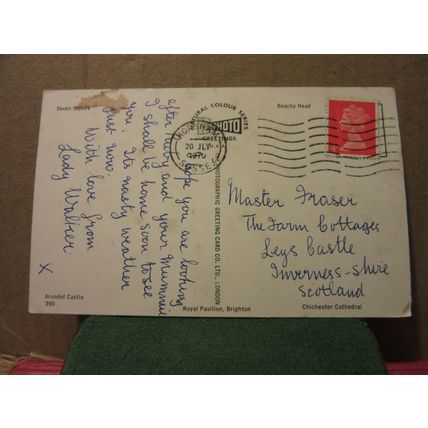 Seven Sisters
Beachy Head
NATURAL COLOUR SERIES
PHOTO
GREETINGS
20 JLY
1970
SUSSEX
THE PHOTOGRAPHIC GREETING CARD CO. LTD., LONDON
hope you are looking
after Ruby and your Mummie
I shall be home soon to see
you. Its nasty weather
just now.
With love from
Lady Walter
X
Master Fraser
The Farm Cottages
Leys Castle
Inverness-shire
Scotland
Arundel Castle
390
Royal Pavilion, Brighton
Chichester Cathedral